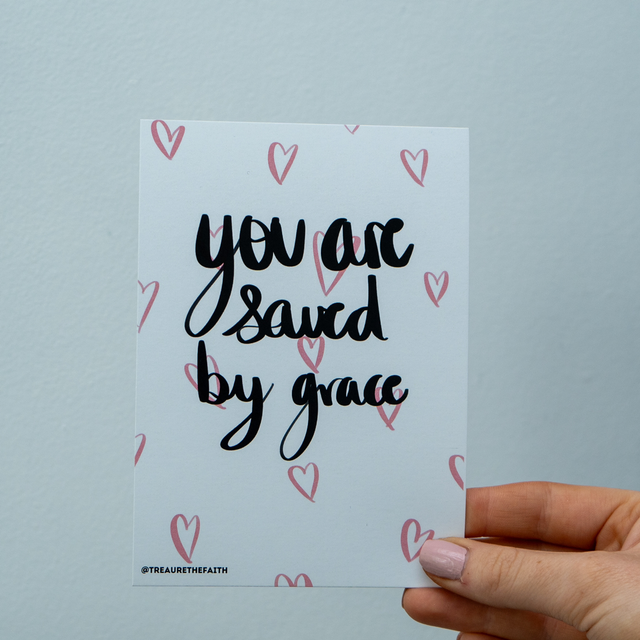 you are
saved
by grace
@TREAURETHEFAITH